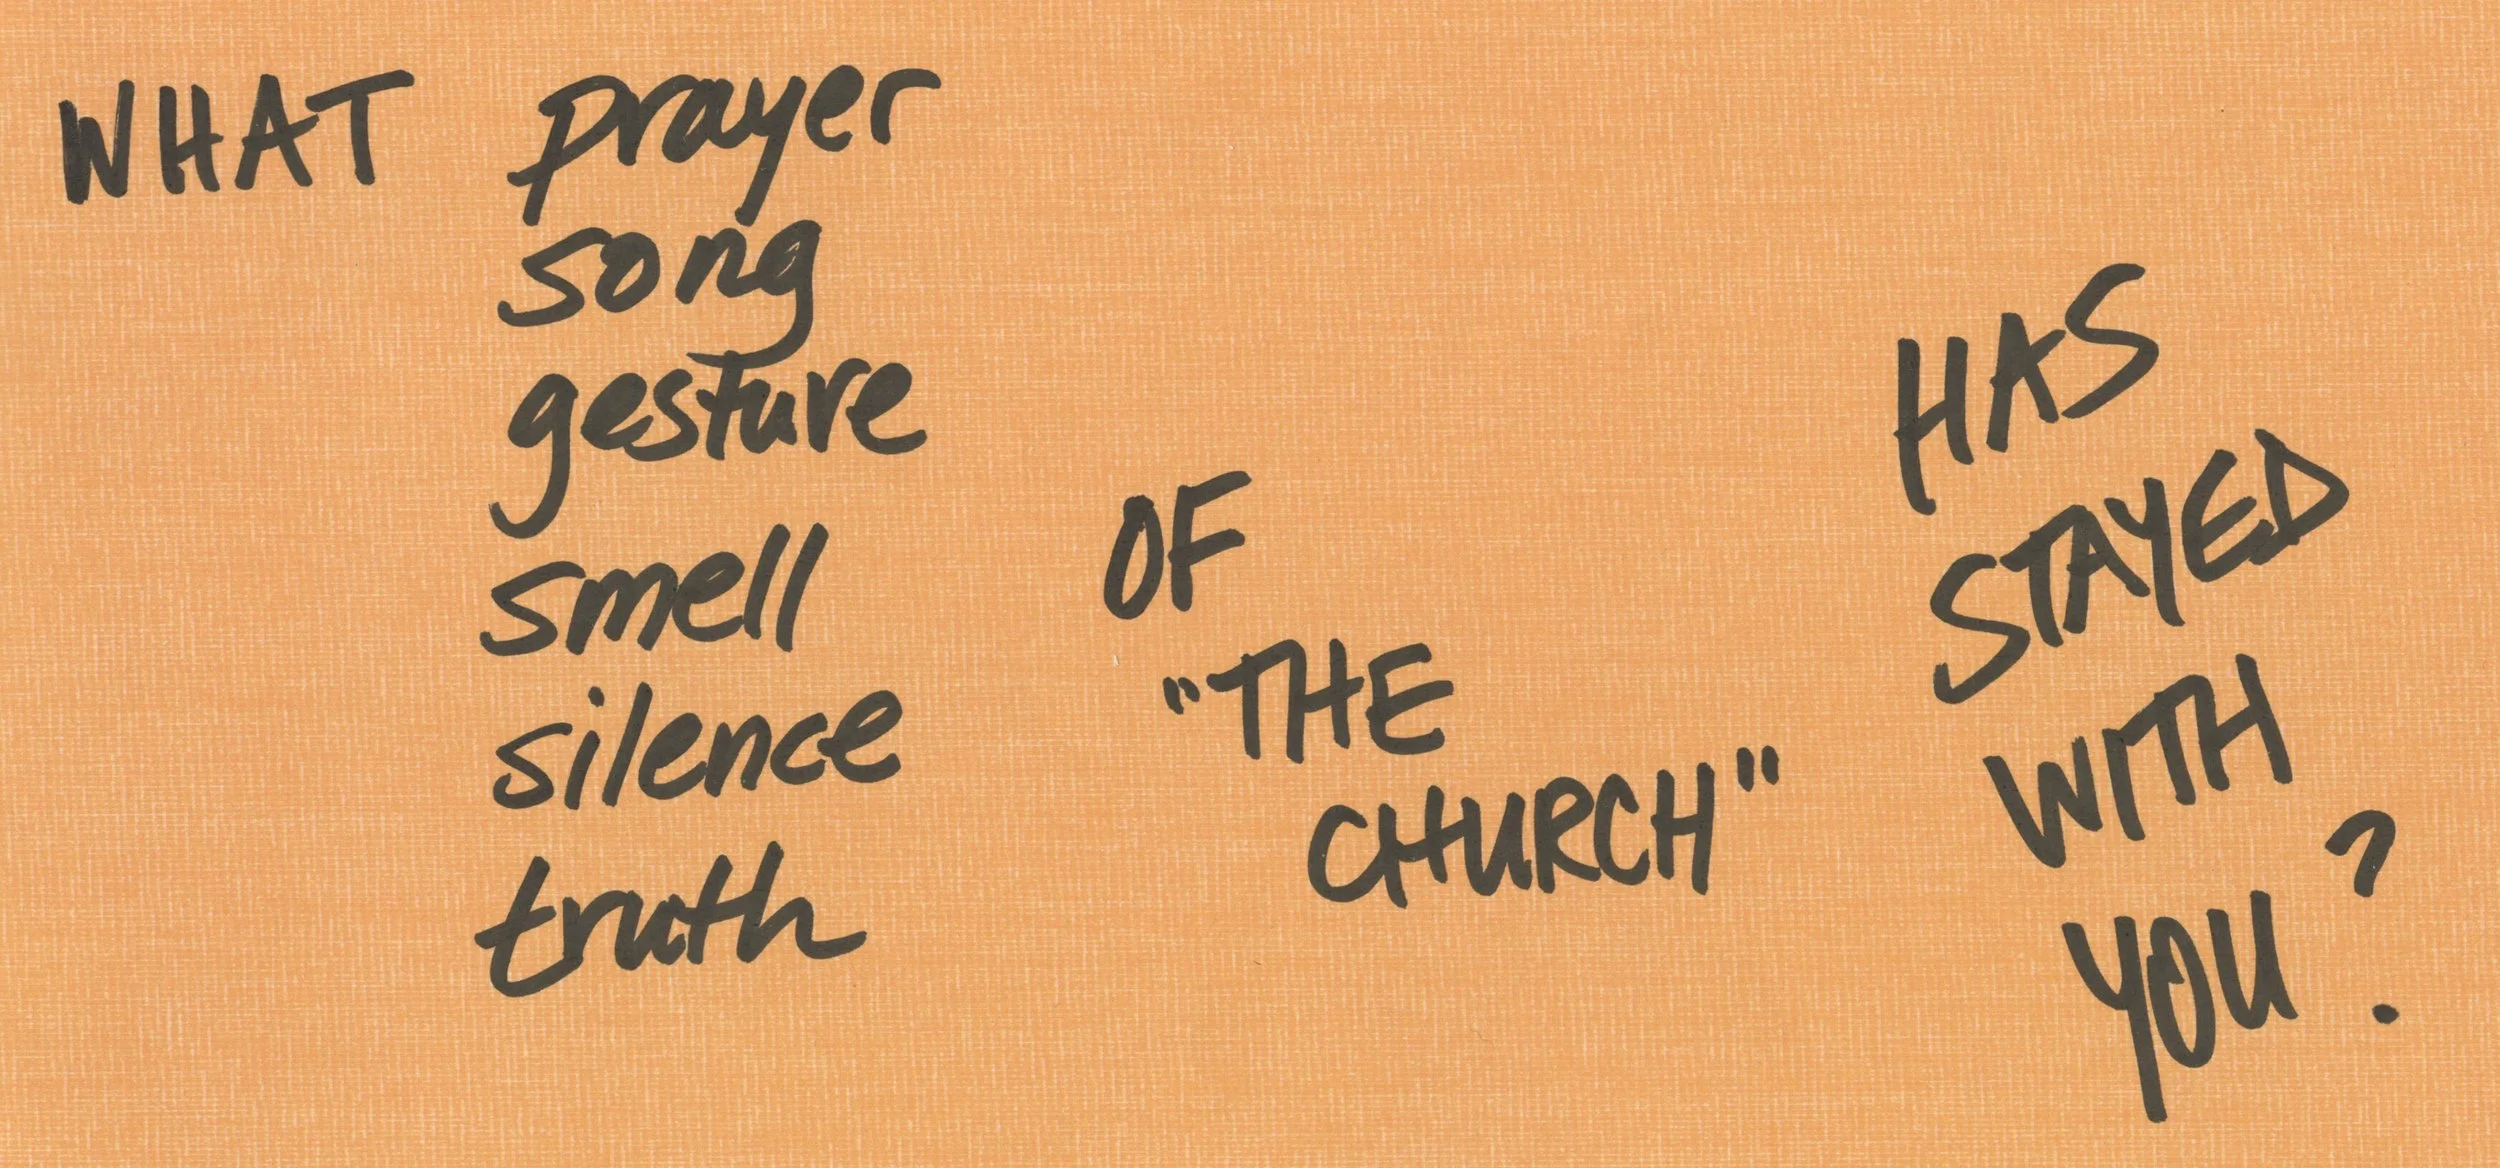 WHAT prayer
song
gesture
smell
silence
truth
OF
"THE
CHURCH"
HAS
STAYED
WITH
YOU?